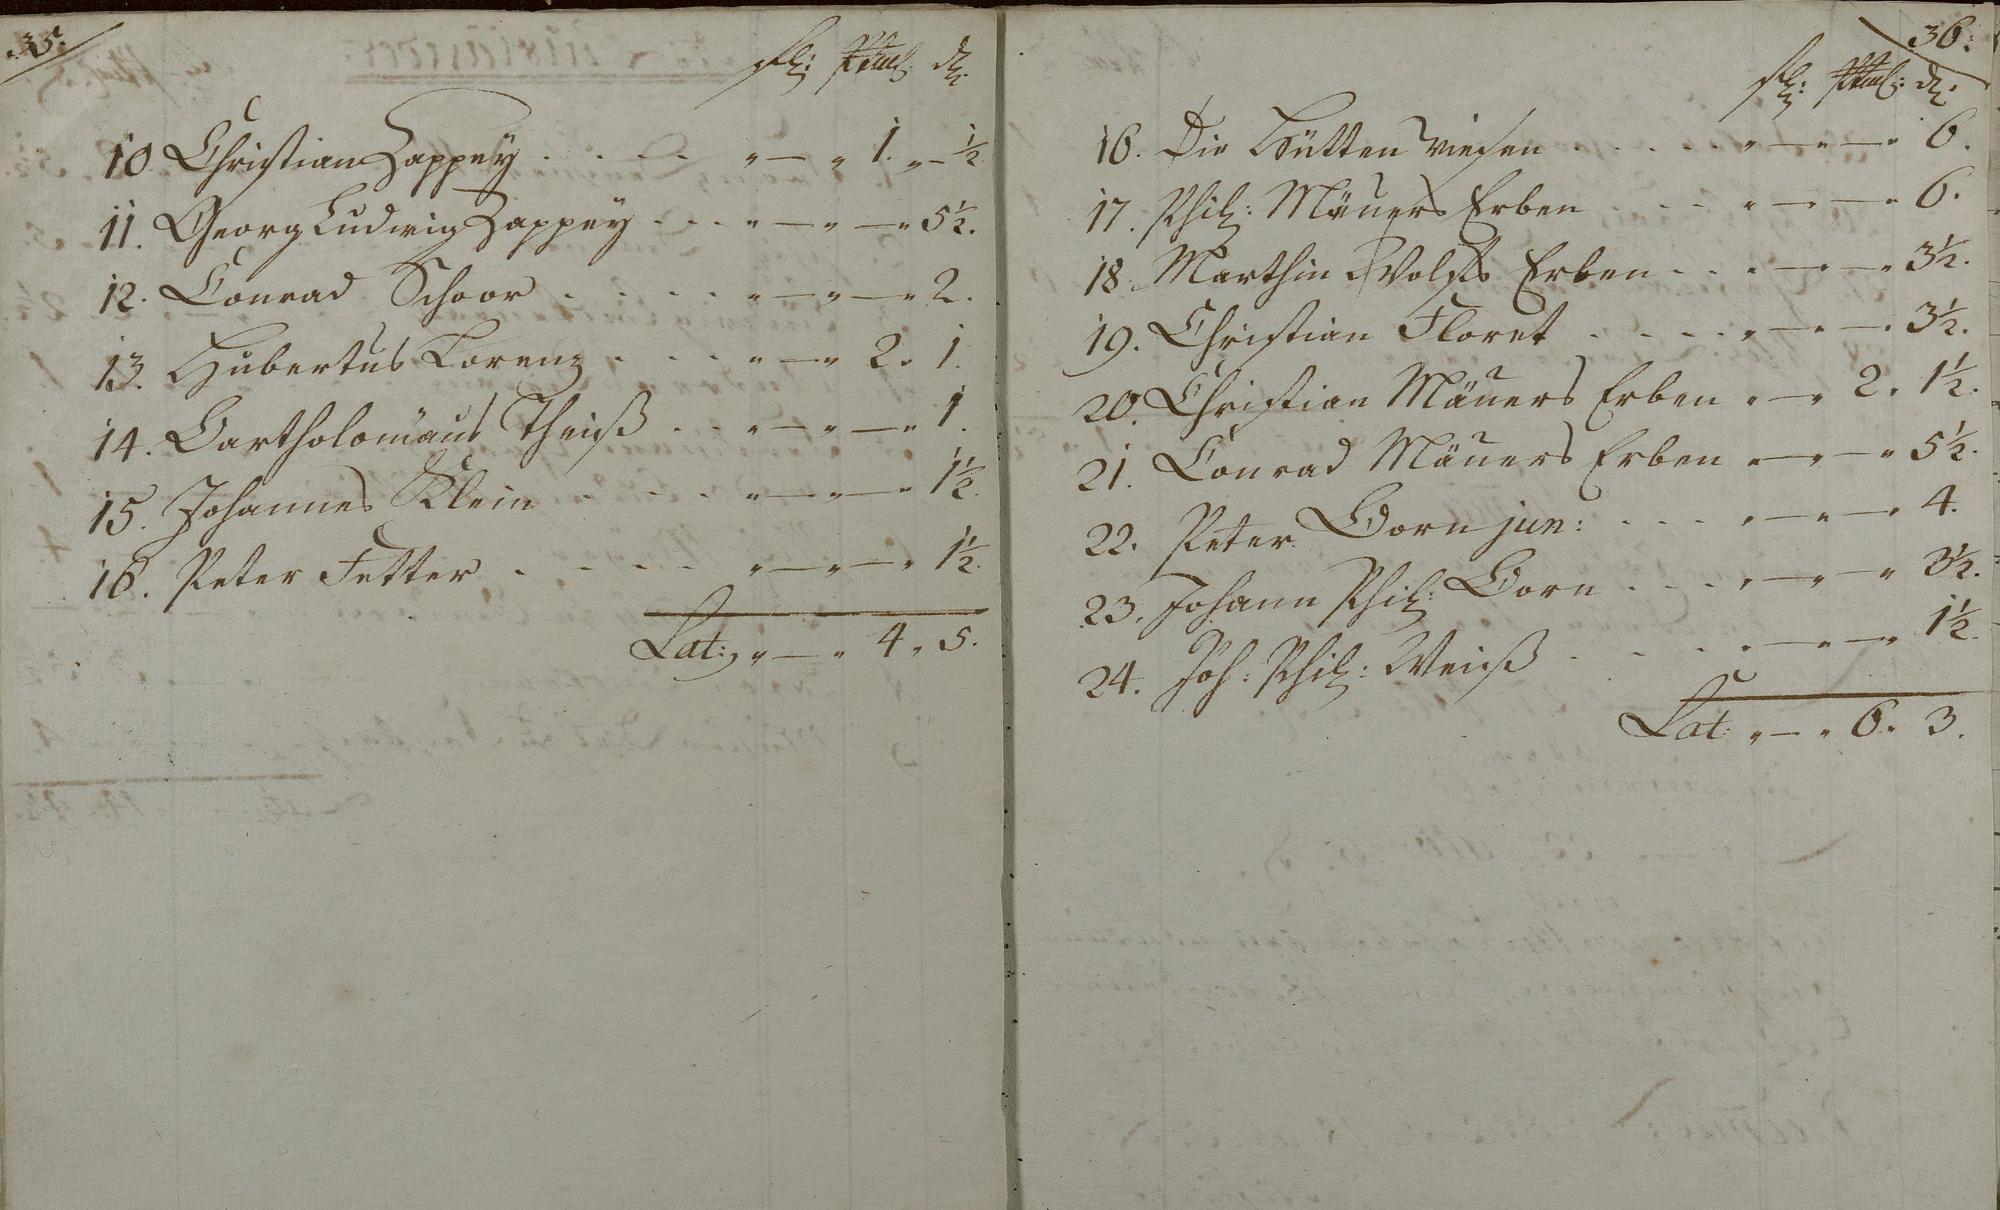 35.
fl: Ptml. d.
10 Christian Zappey . . . . " — " 1. " — ½
11. Georg Ludwig Zappey . . . " — " — " 5½.
12. Conrad Schoor . . . . " — " — " 2.
13. Hubertus Lorenz . . . " — " 2. 1.
14. Bartholomäus Theiß . . " — " — " 1.
15. Johannes Klein . . . " — " — " 1½.
16. Peter Fetter . . . . " — " — " 1½.
Lat: " — " 4. 5.
36.
fl: d.
16. Die Hütten Wiesen . . . . . " — " — " 6.
17. Phil: Mäuers Erben . . . " — " — " 6.
18. Marthin Wolffs Erben . . " — " — " 3½.
19. Christian Floret . . . . " — " — " 3½.
20. Christian Mäuers Erben " — " 2. 1½.
21. Conrad Mäuers Erben " — " — " 5½.
22. Peter Dorn jun: . . . " — " — " 4.
23. Johann Phil: Dorn . . . " — " — " 3½.
24. Joh: Phil: Weiß . . . . " — " — " 1½.
Lat: " — " 6. 3.